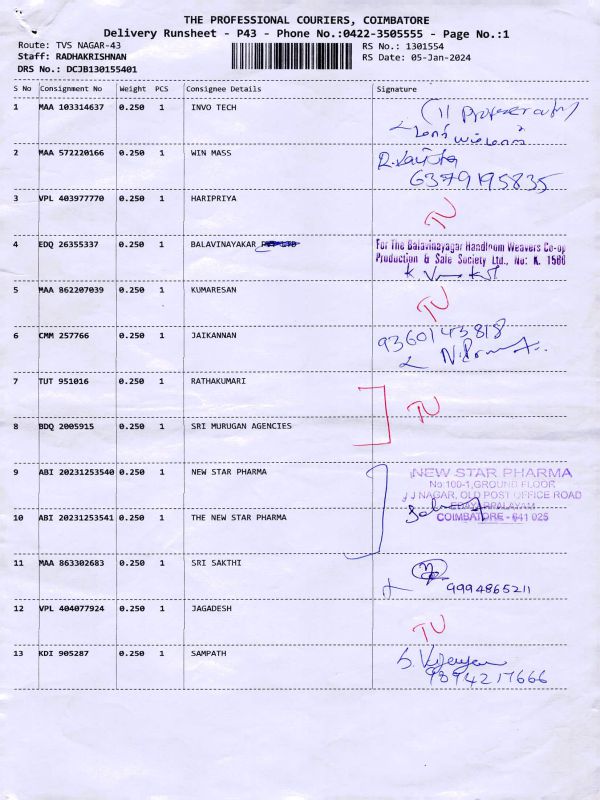 THE PROFESSIONAL COURIERS, COIMBATORE
Delivery Runsheet - P43 - Phone No.:0422-3505555 - Page No.:1
Route: TVS NAGAR-43 RS No.: 1301554
Staff: RADHAKRISHNAN RS Date: 05-Jan-2024
DRS No.: DCJB130155401
S No Consignment No Weight PCS Consignee Details Signature
1 MAA 103314637 0.250 1 INVO TECH
2 MAA 572220166 0.250 1 WIN MASS
6379195835
3 VPL 403977770 0.250 1 HARIPRIYA TU
4 EDQ 26355337 0.250 1 BALAVINAYAKAR For The Balavinayagar Handloom Weavers Co-op
Production & Sale Society Ltd., No: K. 1566
5 MAA 862207039 0.250 1 KUMARESAN TU
6 CMM 257766 0.250 1 JAIKANNAN 9360143818
7 TUT 951016 0.250 1 RATHAKUMARI TU
8 BDQ 2005915 0.250 1 SRI MURUGAN AGENCIES
9 ABI 20231253540 0.250 1 NEW STAR PHARMA NEW STAR PHARMA
No:100-1,GROUND FLOOR
J J NAGAR, OLD POST OFFICE ROAD
10 ABI 20231253541 0.250 1 THE NEW STAR PHARMA COIMBATORE - 641 025
11 MAA 863302683 0.250 1 SRI SAKTHI
9994865211
12 VPL 404077924 0.250 1 JAGADESH TU
13 KDI 905287 0.250 1 SAMPATH
9894217666